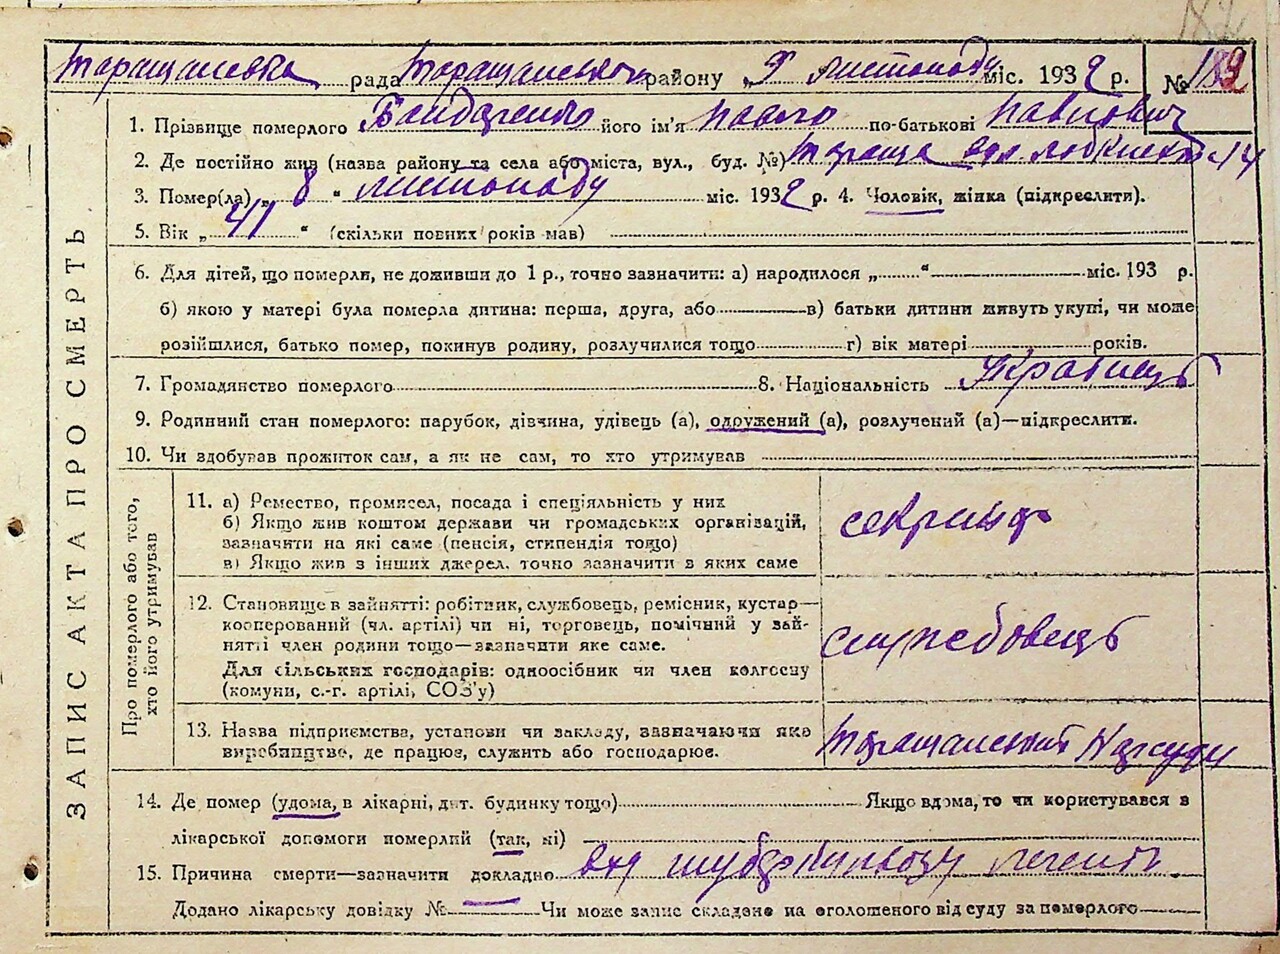 Таращанська рада Таращанського району „9" листопаду міс. 1932 р. № 189
ЗАПИС АКТА ПРО СМЕРТЬ
1. Прізвище померлого його ім'я Павло по-батькові Павлович
2. Де постійно жив (назва району та села або міста, вул., буд. №) Тараща вул.
3. Помер(ла) „8" листопаду міс. 1932 р. 4. Чоловік, жінка (підкреслити).
5. Вік „41" (скільки повних років мав)
6. Для дітей, що померли, не доживши до 1 р., точно зазначити: а) народилося „ " міс. 193 р.
б) якою у матері була померла дитина: перша, друга, або в) батьки дитини живуть укупі, чи може
розійшлися, батько помер, покинув родину, розлучилися тощо г) вік матері років.
7. Громадянство померлого 8. Національність Украінець
9. Родинний стан померлого: парубок, дівчина, удівець (а), одружений (а), розлучений (а)—підкреслити.
10. Чи здобував прожиток сам, а як не сам, то хто утримував
Про померлого або того,
хто його утримував
11. а) Ремество, промисел, посада і спеціяльність у них
б) Якщо жив коштом держави чи громадських організацій,
зазначити на які саме (пенсія, стипендія тощо)
в) Якщо жив з інших джерел, точно зазначити з яких саме
секритар
12. Становище в зайнятті: робітник, службовець, ремісник, кустар—
кооперований (чл. артілі) чи ні, торговець, помічний у зай-
нятті член родини тощо—зазначити яке саме.
Для сільських господарів: одноосібник чи член колгоспу
(комуни, с.-г. артілі, СОЗ'у)
службовець
13. Назва підприємства, установи чи закладу, зазначаючи яке
виробництво, де працює, служить або господарює.
Таращанський Нарсуд
14. Де помер (удома, в лікарні, дит. будинку тощо) Якщо вдома, то чи користувався з
лікарської допомоги померлий (так, ні)
15. Причина смерти—зазначити докладно від туберкульозу легень
Додано лікарську довідку № — Чи може запис складено на оголошеного від суду за померлого